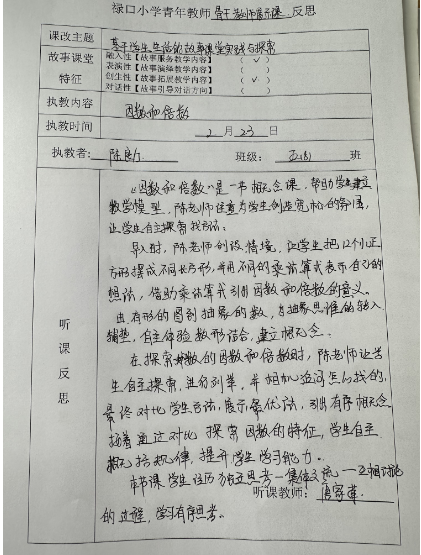 禄口小学青年教师骨干教师展示课 反思
课改主题 基于学生生活的故事课堂实践与探索
故事课堂 融入性【故事服务教学内容】 (√)
表演性【故事演绎教学内容】 ( )
特征 创生性【故事拓展教学内容】 (√)
对话性【故事引导对话方向】 ( )
执教内容 因数和倍数
执教时间 2 月 23 日
执教者: 陈 班级: 五(4) 班
《因数和倍数》是一节概念课,帮助学生建立
数学模型,陈老师注意为学生创造宽松的氛围,
让学生自主探索找方法:
导入时,陈老师创设情境,让学生把12个正
方形摆成不同长方形,并用不同的乘法算式表示自己的
想法,借助乘法算式引出因数和倍数的意义。
由有形的图到抽象的数,为抽象思维的转入
铺垫,自主体验数形结合,建立概念。
在探索数的因数和倍数时,陈老师让学
生自主探索,进行列举,并相机追问怎么找的,
最终对比学生方法,展示最优法,引出有序概念。
接着通过对比探索因数的特征,学生自主
概括规律,提升学生学习能力。
本节课学生经历独立思考—集体交流—互相讨论
的过程,学习有序思考。
听课反思
听课教师: